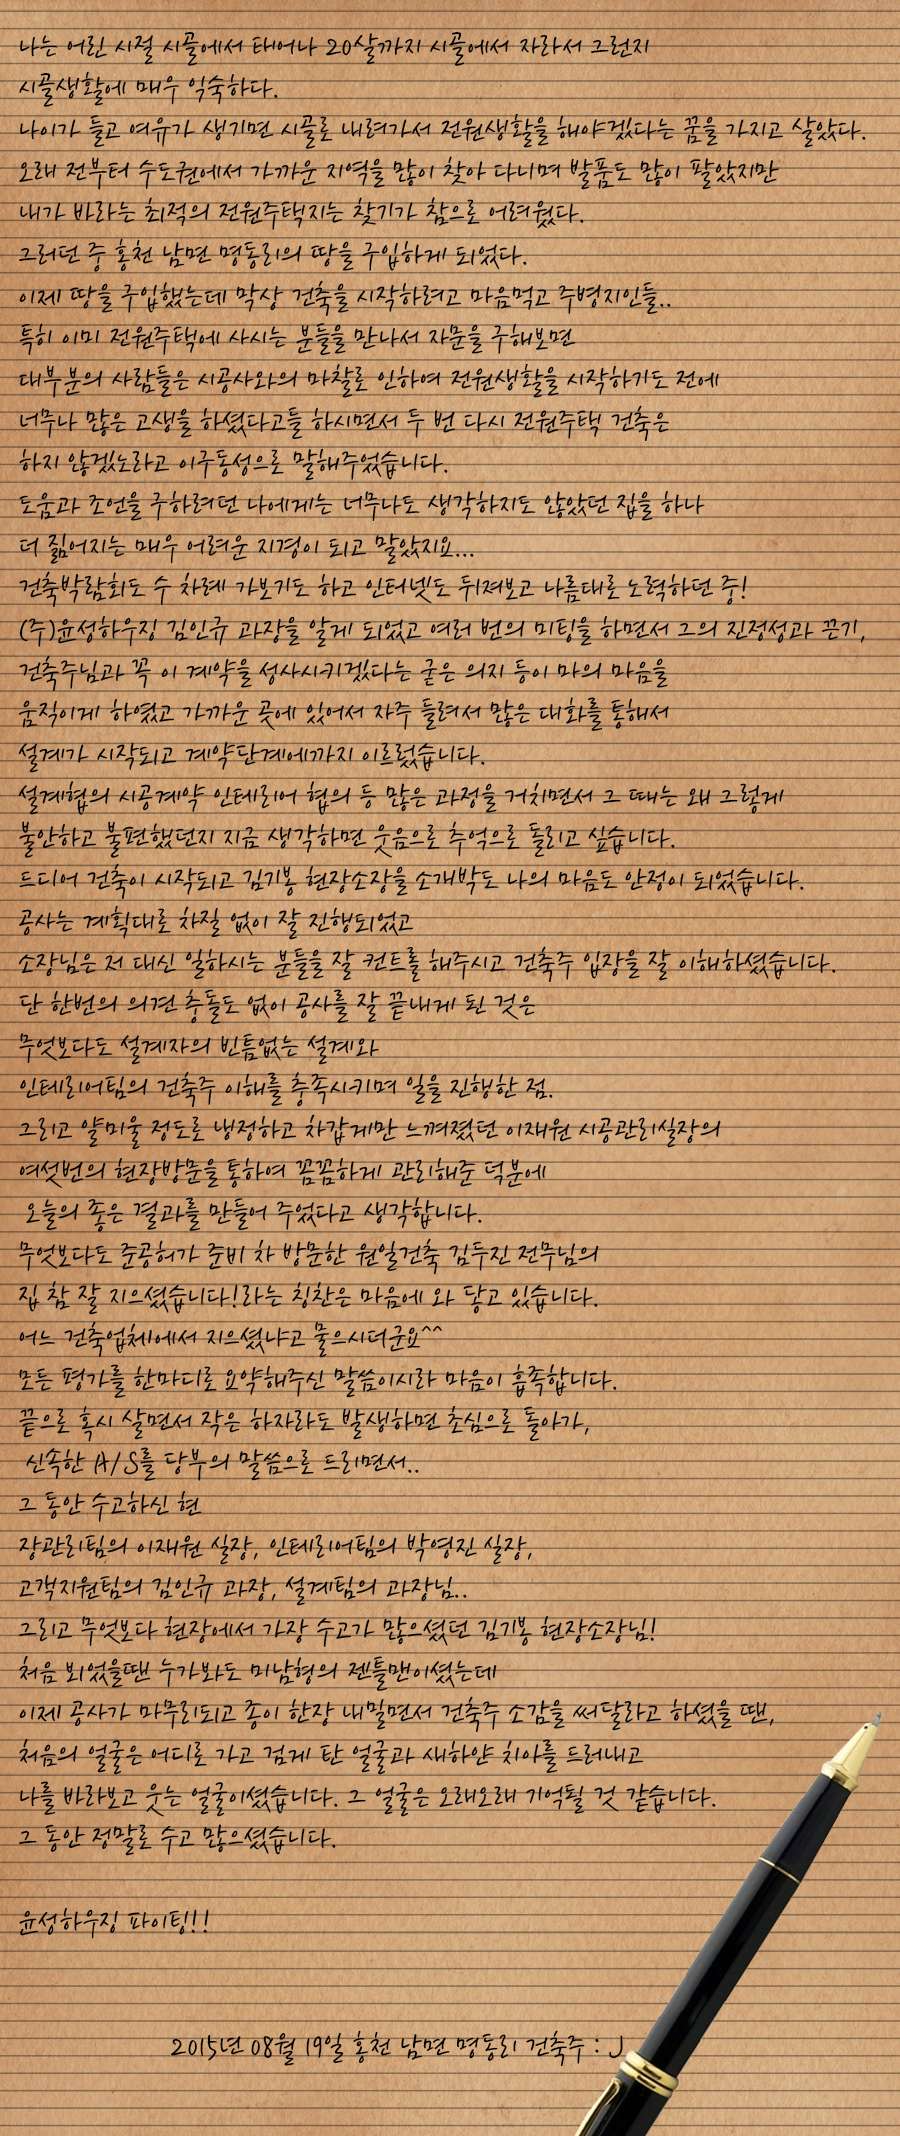 나는 어린 시절 시골에서 태어나 20살까지 시골에서 자라서 그런지
시골생활에 매우 익숙하다.
나이가 들고 여유가 생기면 시골로 내려가서 전원생활을 해야겠다는 꿈을 가지고 살았다.
오래 전부터 수도권에서 가까운 지역을 많이 찾아 다니며 발품도 많이 팔았지만
내가 바라는 최적의 전원주택지는 찾기가 참으로 어려웠다.
그러던 중 홍천 남면 명동리의 땅을 구입하게 되었다.
이제 땅을 구입했는데 막상 건축을 시작하려고 마음먹고 주병지인들..
특히 이미 전원주택에 사시는 분들을 만나서 자문을 구해보면
대부분의 사람들은 시공사와의 마찰로 인하여 전원생활을 시작하기도 전에
너무나 많은 고생을 하셨다고들 하시면서 두 번 다시 전원주택 건축은
하지 않겠노라고 이구동성으로 말해주었습니다.
도움과 조언을 구하려던 나에게는 너무나도 생각하지도 않았던 짐을 하나
더 짊어지는 매우 어려운 지경이 되고 말았지요...
건축박람회도 수 차례 가보기도 하고 인터넷도 뒤져보고 나름대로 노력하던 중!
(주)윤성하우징 김인규 과장을 알게 되었고 여러 번의 미팅을 하면서 그의 진정성과 끈기,
건축주님과 꼭 이 계약을 성사시키겠다는 굳은 의지 등이 마의 마음을
움직이게 하였고 가까운 곳에 있어서 자주 들려서 많은 대화를 통해서
설계가 시작되고 계약단계에까지 이르렀습니다.
설계협의 시공계약 인테리어 협의 등 많은 과정을 거치면서 그 때는 왜 그렇게
불안하고 불편했던지 지금 생각하면 웃음으로 추억으로 돌리고 싶습니다.
드디어 건축이 시작되고 김기봉 현장소장을 소개박도 나의 마음도 안정이 되었습니다.
공사는 계획대로 차질 없이 잘 진행되었고
소장님은 저 대신 일하시는 분들을 잘 컨트롤 해주시고 건축주 입장을 잘 이해하셨습니다.
단 한번의 의견 충돌도 없이 공사를 잘 끝내게 된 것은
무엇보다도 설계자의 빈틈없는 설계와
인테리어팀의 건축주 이해를 충족시키며 일을 진행한 점.
그리고 얄미울 정도로 냉정하고 차갑게만 느껴졌던 이재원 시공관리실장의
여섯번의 현장방문을 통하여 꼼꼼하게 관리해준 덕분에
오늘의 좋은 결과를 만들어 주었다고 생각합니다.
무엇보다도 준공허가 준비 차 방문한 원일건축 김두진 전무님의
집 참 잘 지으셨습니다!라는 칭찬은 마음에 와 닿고 있습니다.
어느 건축업체에서 지으셨냐고 물으시더군요^^
모든 평가를 한마디로 요약해주신 말씀이시라 마음이 흡족합니다.
끝으로 혹시 살면서 작은 하자라도 발생하면 초심으로 돌아가,
신속한 A/S를 당부의 말씀으로 드리면서..
그 동안 수고하신 현
장관리팀의 이재원 실장, 인테리어팀의 박영진 실장,
고객지원팀의 김인규 과장, 설계팀의 과장님..
그리고 무엇보다 현장에서 가장 수고가 많으셨던 김기봉 현장소장님!
처음 뵈었을땐 누가봐도 미남형의 젠틀맨이셨는데
이제 공사가 마무리되고 종이 한장 내밀면서 건축주 소감을 써달라고 하셨을 땐,
처음의 얼굴은 어디로 가고 검게 탄 얼굴과 새하얀 치아를 드러내고
나를 바라보고 웃는 얼굴이셨습니다. 그 얼굴은 오래오래 기억될 것 같습니다.
그 동안 정말로 수고 많으셨습니다.
윤성하우징 파이팅!!
2015년 08월 19일 홍천 남면 명동리 건축주 : J